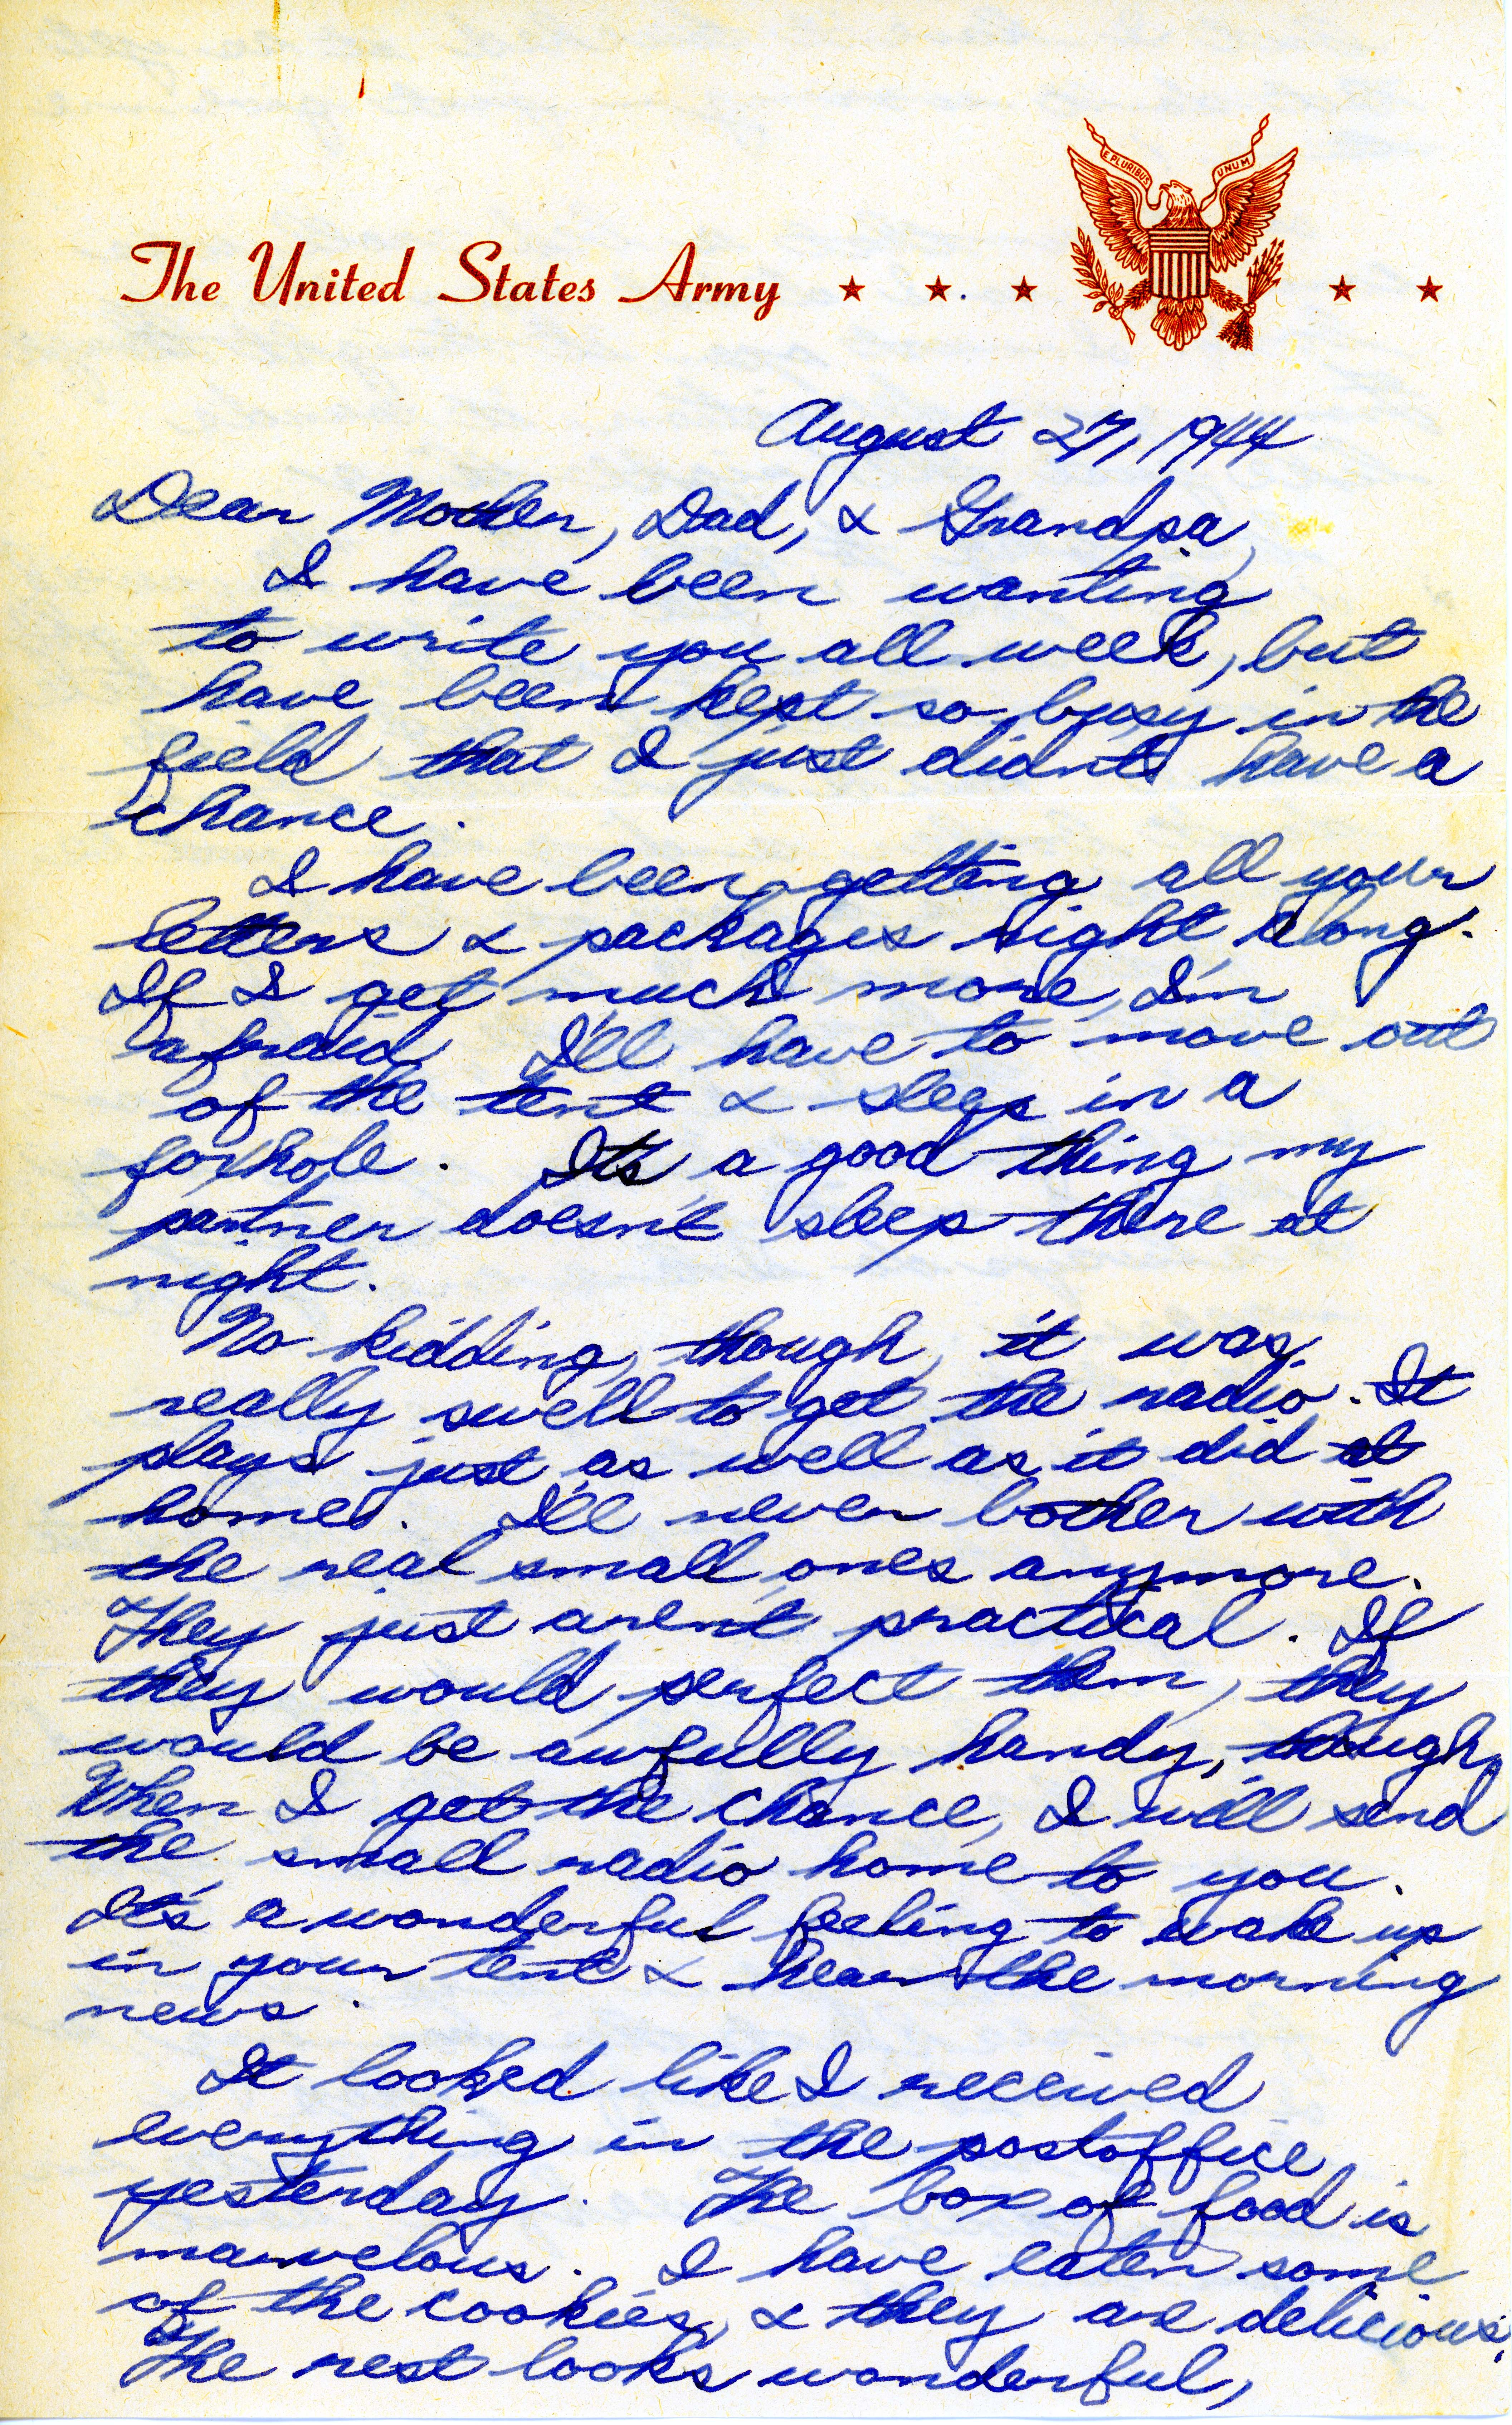 E PLURIBUS UNUM
The United States Army
August 27, 1944
Dear Mother, Dad, & Grandpa,
I have been wanting
to write you all week, but
have been kept so busy in the
field that I just didn't have a
chance.
I have been getting all your
letters & packages right along.
If I get much more, I'm
afraid I'll have to move out
of the tent & sleep in a
foxhole. It's a good thing my
partner doesn't sleep there at
night.
No kidding, though, it was
really swell to get the radio. It
plays just as well as it did at
home. I'll never bother with
the real small ones anymore.
They just aren't practical. If
they would perfect them, they
would be awfully handy, though.
When I get the chance, I will send
the small radio home to you.
It's a wonderful feeling to wake up
in your tent & hear the morning
news.
It looked like I received
everything in the postoffice
yesterday. The box of food is
marvelous. I have eaten some
of the cookies, & they are delicious.
The rest looks wonderful,